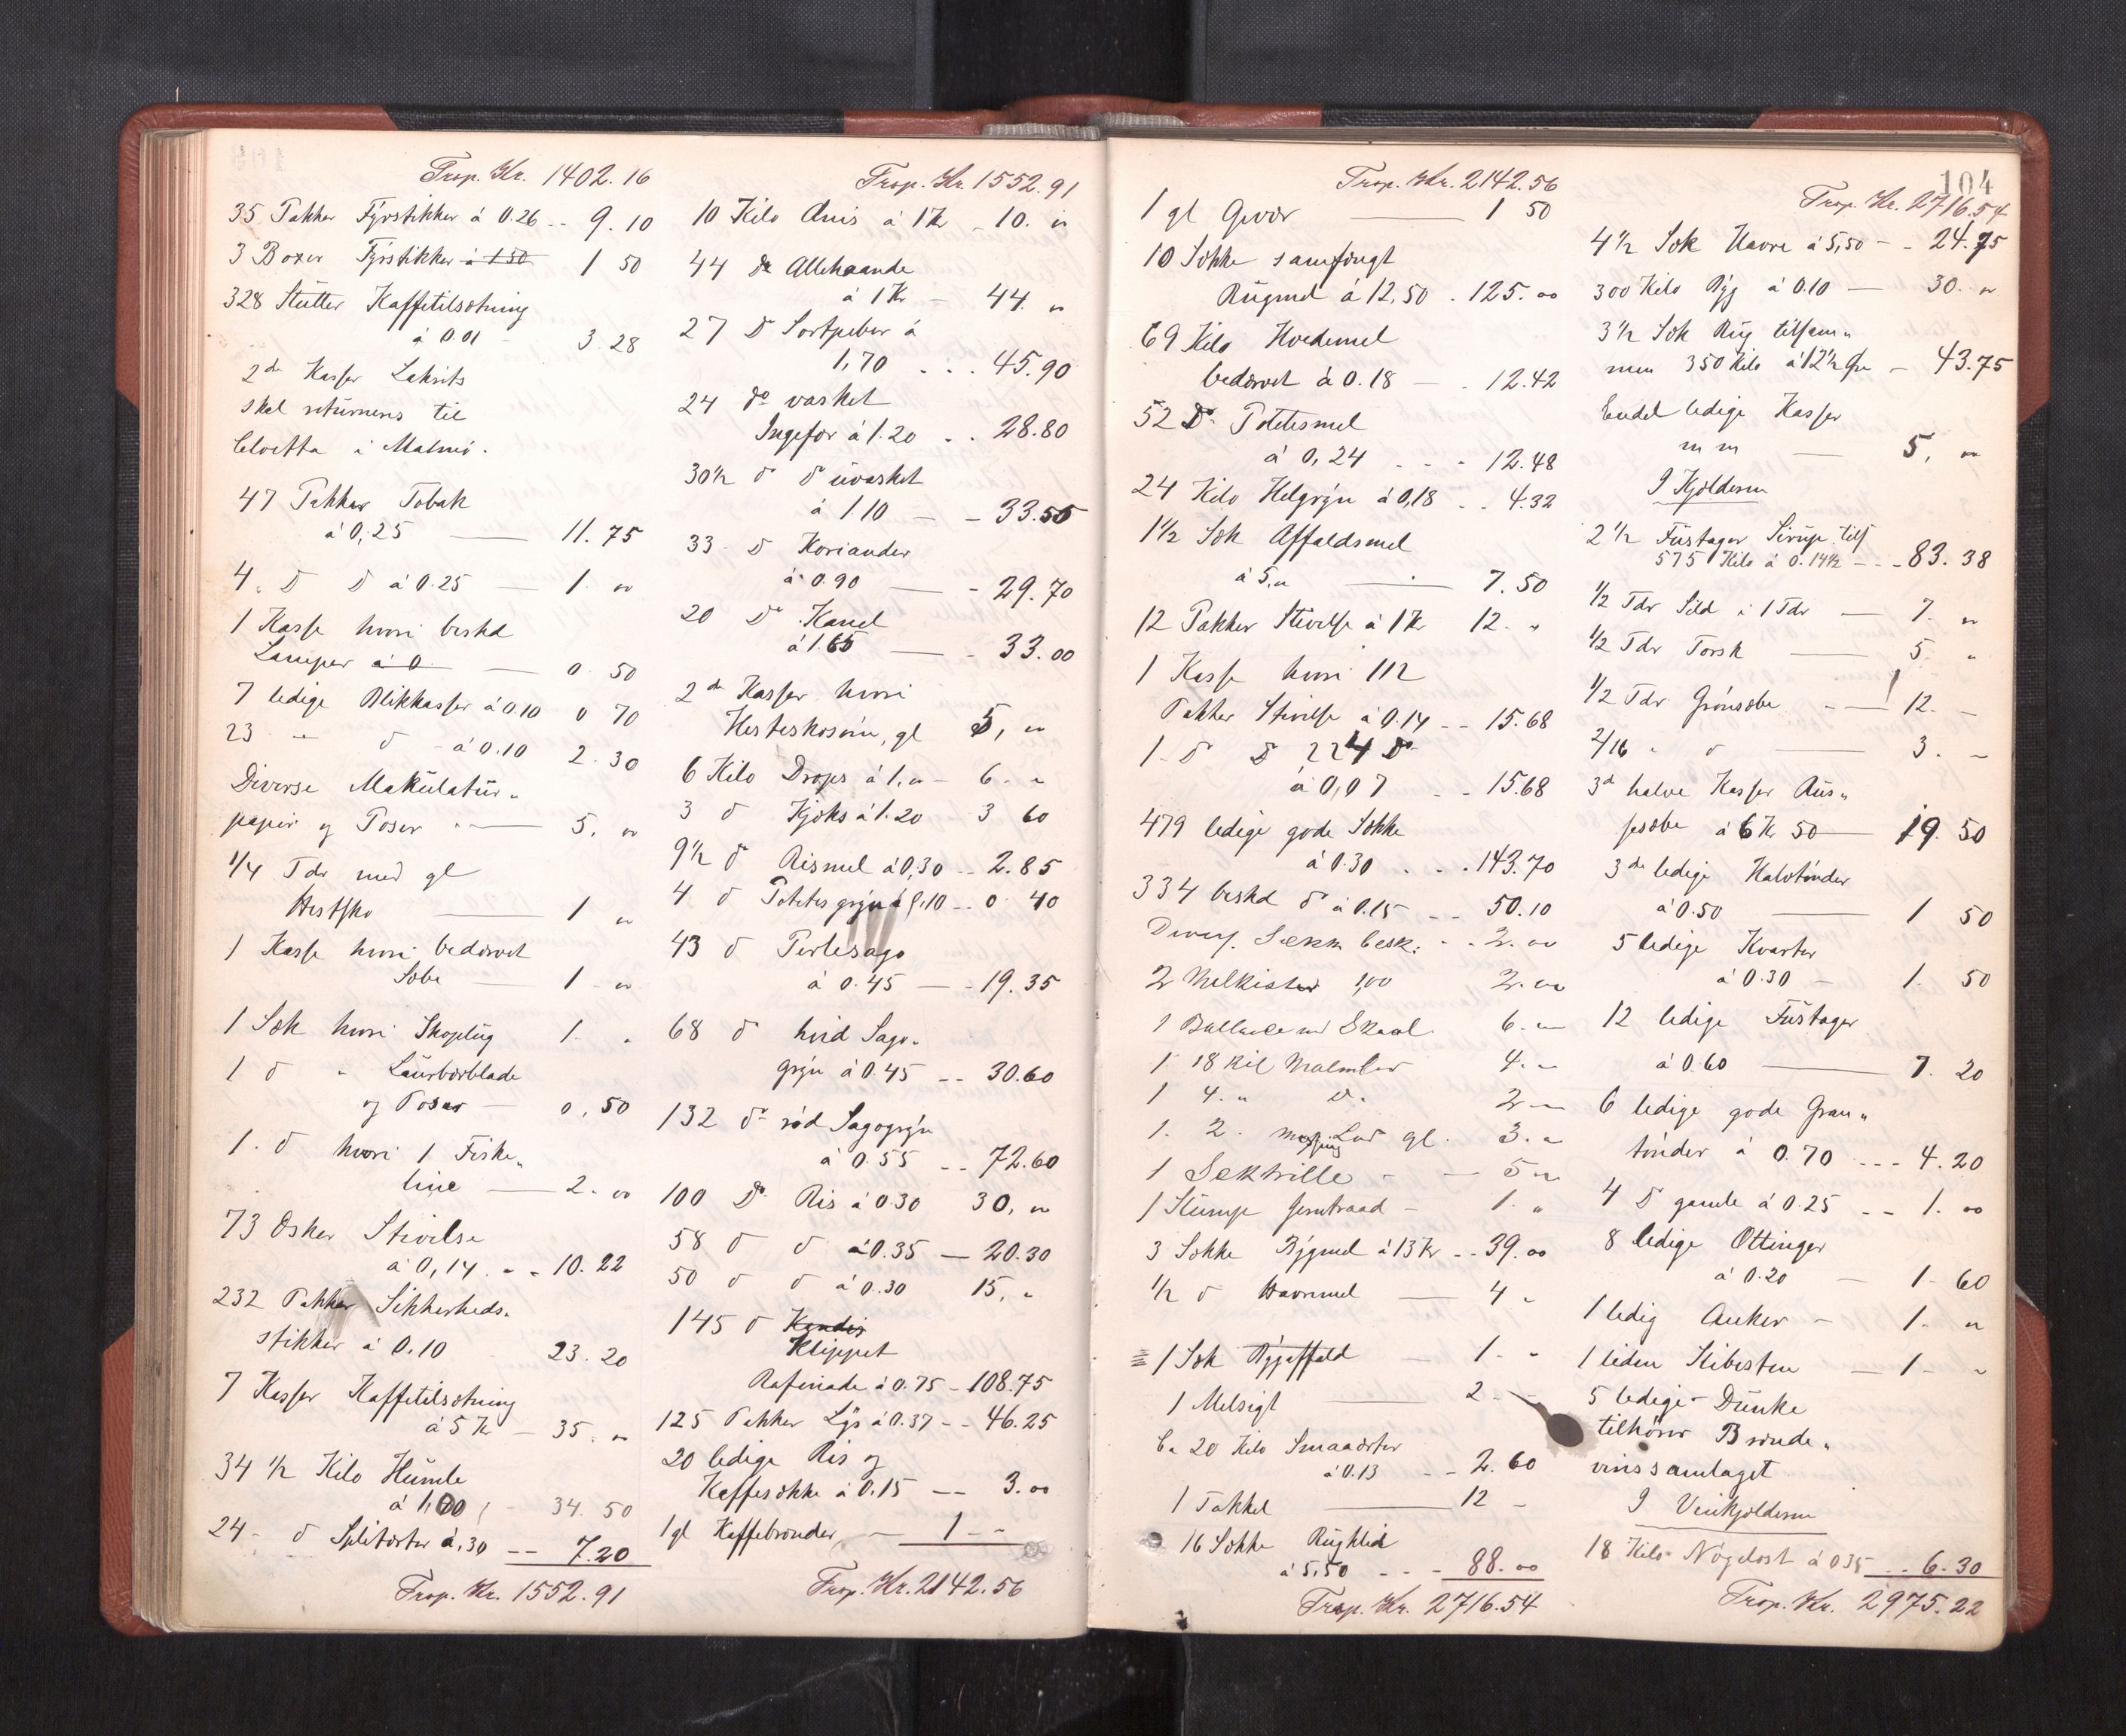 Trsp. Kr. 1402.16
35 Pakker Fyrstikker á 0.26 -- 9.10
3 Boxer Fyrstikker á 1 50 1 50
328 Stutter Kaffetilsætning
á 0.01 - 3.28
2de Kasser Lakrits
skal returneres til
Cloetta i Malmø.
47 Pakker Tobak
á 0,25 — 11.75
4 D D á 0.25 — 1. "
1 Kasse hvori beskd
Lamper á 0 — 0 50
7 ledige Blikkasser á 0.10 0 70
23 " D - á 0.10 2.30
Diverse Makulatur-
papir og Poser — 5. "
1/4 Tdr med gl
Hestsko — 1 "
1 Kasse hvori bedærvet
Sæbe — 1 - "
1 Sæk hvori Skoplug 1. "
1 D " Laurbærblade
og Poser — 0,50
1. D hvori 1 Fiske-
line — 2. "
73 Æsker Stivelse
á 0,14 - - 10.22
232 Pakker Sikkerheds-
stikker á 0.10 - 23.20
7 Kasser Kaffetilsætning
á 5 Kr — 35. "
34 1/2 Kilo Humle
á 1,00 - 34.50
24 - D Spliterter á ,30 -- 7.20
Trsp. Kr. 1552.91
Trsp. Kr. 1552.91
10 Kilo Anis á 1 Kr - 10. "
44 Do Allehaande
á 1 Kr — 44. "
27 D Sortpeber á
1,70 . . . 45.90
24 Do vasket
Ingefær á 1.20 . . 28.80
30 1/2 D D uvasket
á 1 10 — - 33.55
33 D Koriander
á 0.90 — - 29.70
20 Do Kanel
á 1.65 — - 33.00
2de Kasser hvori
Hesteskosøm, gl 5, "
6 Kilo Drops á 1," - 6. "
3 D Kjæks á 1.20 3 60
9 1/2 D Rismel á 0,30 -- 2.85
4 D Potetesgryn á 0,10 -- 0 40
43 D Perlesago
á 0.45 — - 19.35
68 D hvid Sago-
gryn á 0.45 -- 30.60
132 Do rød Sagogryn
á 0.55 -- 72.60
100 Do Ris á 0.30 30, "
58 D D á 0.35 — 20.30
50 D D á 0.30 15, "
145 D Kandis
Klippet
Rafinade á 0.75 - 108.75
125 Pakker Lys á 0.37 -- 46.25
20 ledige Ris og
Kaffesække á 0.15 -- 3.00
1 gl Kaffebrænder — 1 - -
Trsp. Kr. 2142.56
Trsp. Kr. 2142.56
1 gl Gevær — 1 50
10 Sække samfængt
Rugmel á 12,50 . 125.00
69 Kilo Hvedemel
bedærvet á 0.18 — . 12.42
52 Do Potetesmel
á 0,24 . . . 12.48
24 Kilo Helgryn á 0,18 . . 4.32
1 1/2 Sæk Affaldsmel
á 5," — 7.50
12 Pakker Stivelse á 1 Kr 12. "
1 Kasse hvori 112
Pakker Stivelse á 0.14 -- 15.68
1 D D 224 Do
á 0,07 - - 15.68
479 ledige gode Sække
á 0.30 . . . 143.70
334 beskd D á 0.15 -- 50.10
Divers. Sække besk. - - 2.00
2 Melkister 1,00 2.00
1 Ballance m/ Skaal 6. "
1 18 Kil Malmlod 4. "
1 4. " D. 2 —
1. 2. messing Lod gl. 3. "
1 Sektrille - — 5 "
1 Stump Jerntraad - 1. "
3 Sække Bygmel á 13 Kr -- 39.00
1/2 D Havremel — 4 "
1 Sæk Bygaffald — 1 - "
1 Melsigt — 2 - -
Ca 20 Kilo Smaaerter
á 0.13 - - 2.60
1 Takkel — 12 -
16 Sække Rugklid
á 5,50 - - - 88.00
Trsp. Kr. 2716.54
104
Trsp. Kr. 2716.54
4 1/2 Sæk Havre á 5,50 - - 24.75
300 Kilo Byg á 0.10 — 30. "
3 1/2 Sæk Rug tilsam-
men 350 Kilo á 12 1/2 Øre - 43.75
Endel ledige Kasser
m m — 5, "
I Kjælderen
2 1/2 Fustager Sirup tils
575 Kilo á 0.14 1/2 - - - 83.38
1/2 Tdr Sild i 1 Tdr — 7. "
1/2 Tdr Torsk — 5. "
1/2 Tdr Grønsæbe - — 12. -
2/16 " D — 3. -
3d halve Kasser Rus-
sesæbe á 6 Kr 50 — 19.50
3de ledige Halvtønder
á 0.50 — 1 50
5 ledige Kvarter
á 0.30 - 1. 50
12 ledige Fustager
á 0.60 — 7. 20
6 ledige gode Gran-
tønder á 0.70 --- 4.20
4 D gamle á 0.25 -- 1.00
8 ledige Ottinger
á 0.20 — 1 - 60
1 ledig Anker - 1. "
1 liden Stibesten — 1 - "
5 ledige Dunke
tilhører Brænde-
vinssamlaget
I Vinkjælderen
18 Kilo Nøgelost á 0 35 -- 6.30
Trsp. Kr. 2975.22